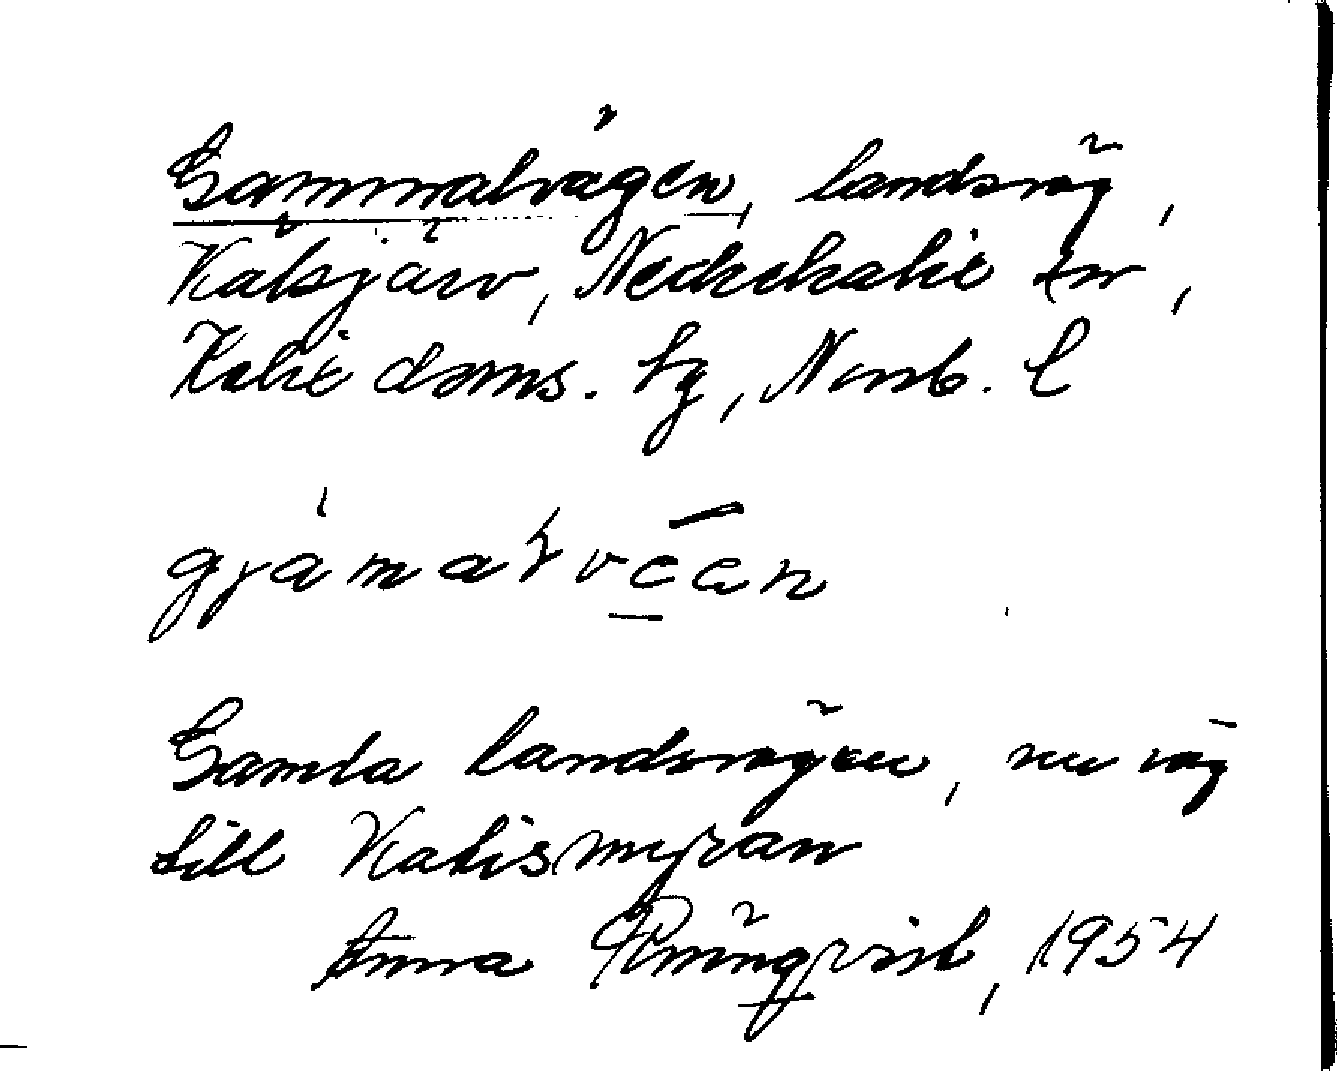 Gammalvägen, landsväg,
Kälsjärv, Nederkalix sn,
Kalix doms. tg, Norrb. l
gjámatvććn
Gamla landsvägen, nu väg
till Kalixmyran
Anna 1954